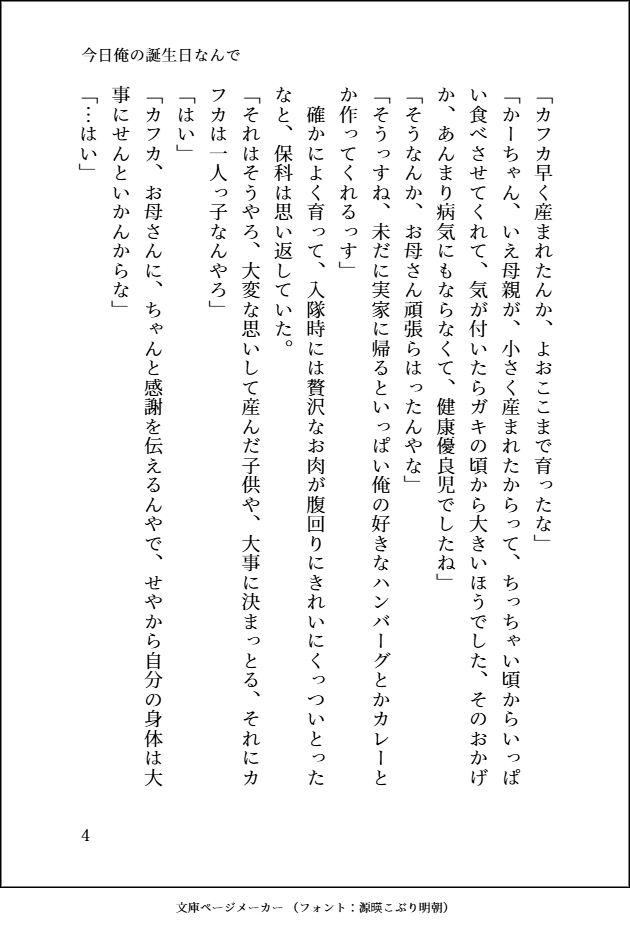 今日俺の誕生日なんで
「カフカ早く産まれたんか、よおここまで育ったな」
「かーちゃん、いえ母親が、小さく産まれたからって、ちっちゃい頃からいっぱ
い食べさせてくれて、気が付いたらガキの頃から大きいほうでした、そのおかげ
か、あんまり病気にもならなくて、健康優良児でしたね」
「そうなんか、お母さん頑張らはったんやな」
「そうっすね、未だに実家に帰るといっぱい俺の好きなハンバーグとかカレーと
か作ってくれるっす」
　確かによく育って、入隊時には贅沢なお肉が腹回りにきれいにくっついとった
なと、保科は思い返していた。
「それはそうやろ、大変な思いして産んだ子供や、大事に決まっとる、それにカ
フカは一人っ子なんやろ」
「はい」
「カフカ、お母さんに、ちゃんと感謝を伝えるんやで、せやから自分の身体は大
事にせんといかんからな」
「…はい」
4
文庫ページメーカー（フォント：源暎こぶり明朝）